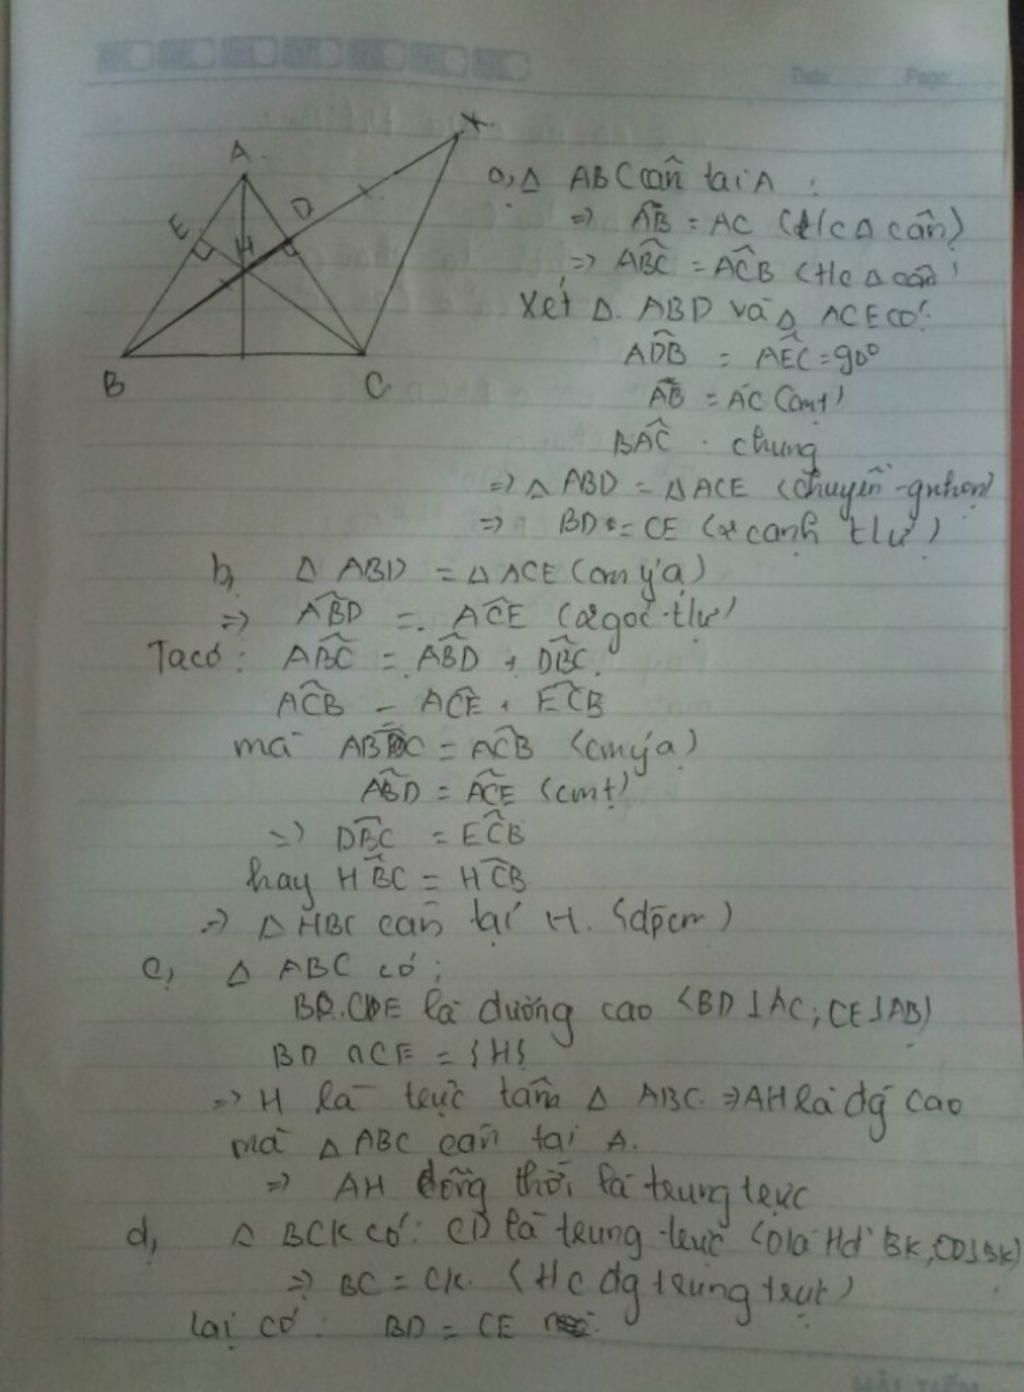 Date Page
A K
E D
H
B C
a, Δ ABC cân tại A :
=> AB = AC (t/c Δ cân)
=> ABC = ACB (t/c Δ cân)
Xét Δ ABD và Δ ACE có:
ADB = AEC = 90°
AB = AC (cmt)
BAC . chung
=> Δ ABD = Δ ACE (chuyền - gnhọn)
=> BD = CE (2 cạnh t/ư)
b, Δ ABD = Δ ACE (cm ý a)
=> ABD = ACE (2 góc t/ư)
Ta có: ABC = ABD + DBC
ACB = ACE + ECB
mà ABC = ACB (cm ý a)
ABD = ACE (cmt)
=> DBC = ECB
hay HBC = HCB
=> Δ HBC cân tại H. (đpcm)
c, Δ ABC có:
BD. CE là đường cao (BD ⊥ AC; CE ⊥ AB)
BD ∩ CE = {H}
=> H là trực tâm Δ ABC => AH là đg cao
mà Δ ABC cân tại A.
=> AH đồng thời là trung trực
d, Δ BCK có: CD là trung trực (D là tđ BK, CD ⊥ BK)
=> BC = CK. (t/c đg trung trực)
lại có: BD = CE